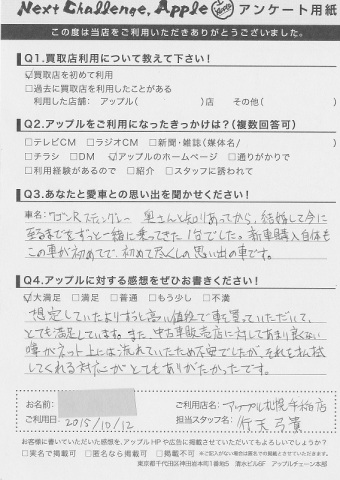 Next Challenge, Apple アンケート用紙
この度は当店をご利用いただきありがとうございました。
Q1.買取店利用について教えて下さい!
☑買取店を初めて利用
□過去に買取店を利用したことがある
利用した店舗: アップル( )店 その他( )
Q2.アップルをご利用になったきっかけは?(複数回答可)
□テレビCM □ラジオCM □新聞・雑誌(媒体名/ )
□チラシ □DM ☑アップルのホームページ □通りがかりで
□利用経験があるので □紹介 □スタッフに誘われて
Q3.あなたと愛車との思い出を聞かせください!
車名:ワゴンRスティングレー 奥さんと知りあってから、結婚して今に
至るまでをずっと一緒に乗ってきた1台でした。新車購入自体も
この車が初めてで、初めて尽くしの思い出の車です。
Q4.アップルに対する感想をぜひお書きください!
☑大満足 □満足 □普通 □もう少し □不満
想定していたよりずっと高い値段で車を買っていただいて、
とても満足しています。また、中古車販売店に対してあまり良くない
噂がネット上には流れていたため不安でしたが、それを払拭
してくれる対応がとてもありがたかったです。
お名前:
ご利用日: 2015/10/12
ご利用店名: アップル札幌手稲店
担当スタッフ名: 行天 弓貴
お客様に書いていただいた感想を、アップルHPや広告に掲載させていただいてもよろしいでしょうか?
□実名で掲載可 □匿名なら掲載可 □掲載不可 ※ご記入がない場合は匿名で掲載させていただきます。
東京都千代田区神田岩本町1番地5 清水ビル6F アップルチェーン本部